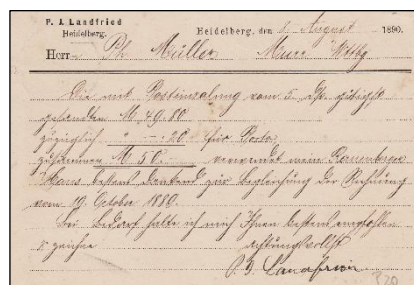 P. J. Landfried
Heidelberg.
Heidelberg, den 8. August 1890.
Herrn Ph. Müller Murr Wttbg
Die mit Posteinzalung vom 5. ds. gütigst
gesandten M 49.80
zuzüglich " -.20 für Porto
zusammen M 50.- verwendet mein
Haus bestens dankend zur Begleichung der Rechnung
vom 19. October 1889.
Bei Bedarf halte ich mich Ihnen bestens empfohlen
& zeichne achtungsvollst
P. J. Landfried